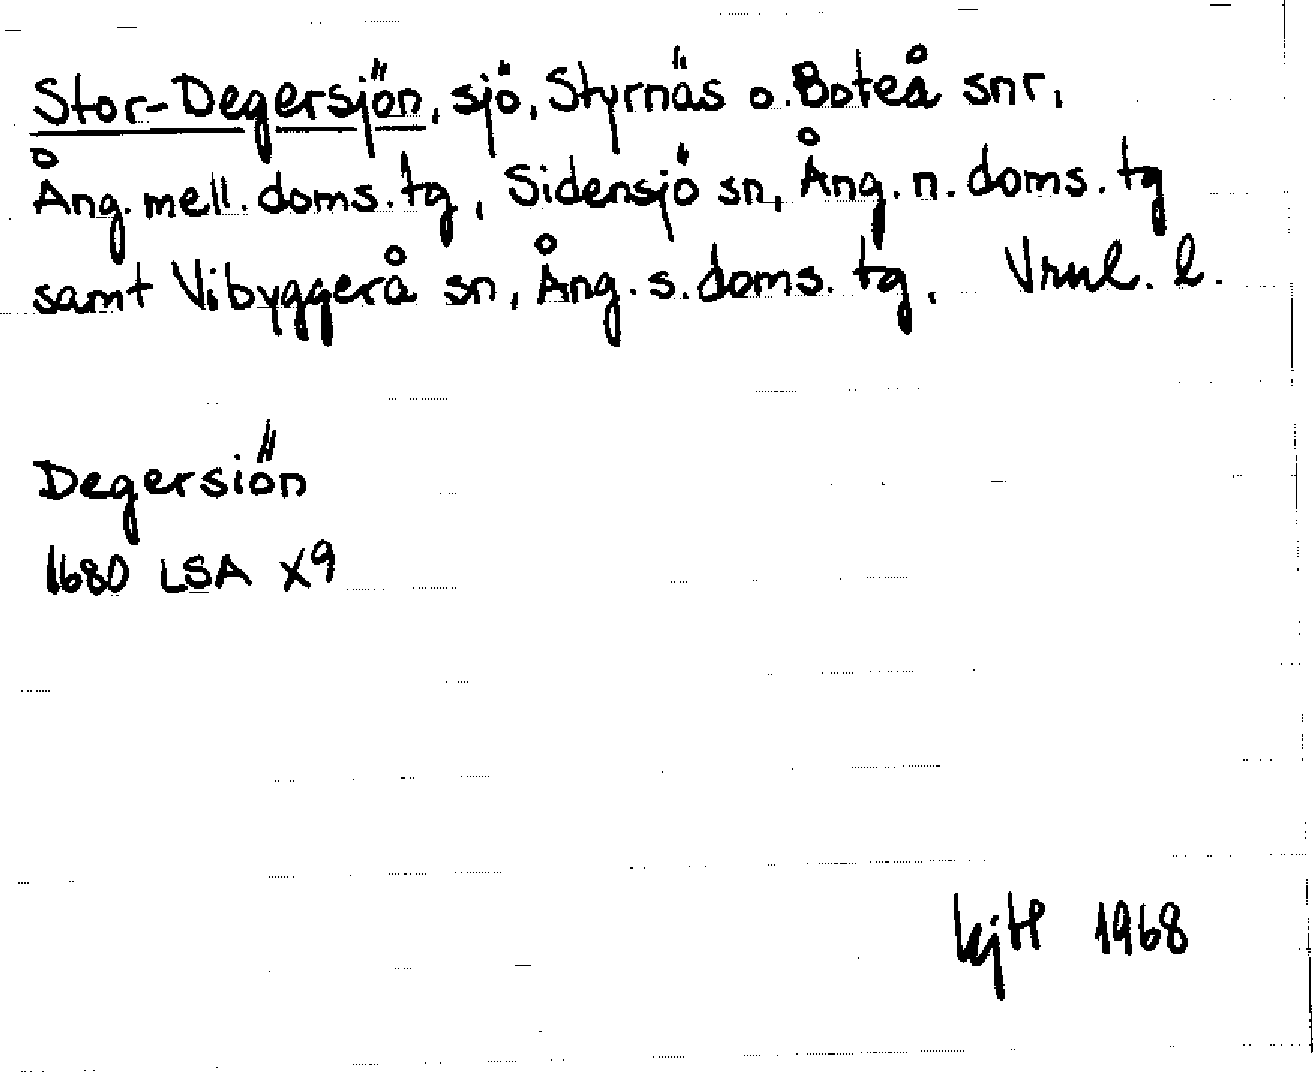 Stor-Degersjön, sjö, Styrnäs o. Boteå snr,
Ång. mell. doms. tg, Sidensjö sn, Ång. n. doms. tg
samt Vibyggerå sn, Ång. s. doms. tg. Vrnl. l.
Degersiön
1680 LSA X9
KjH 1968